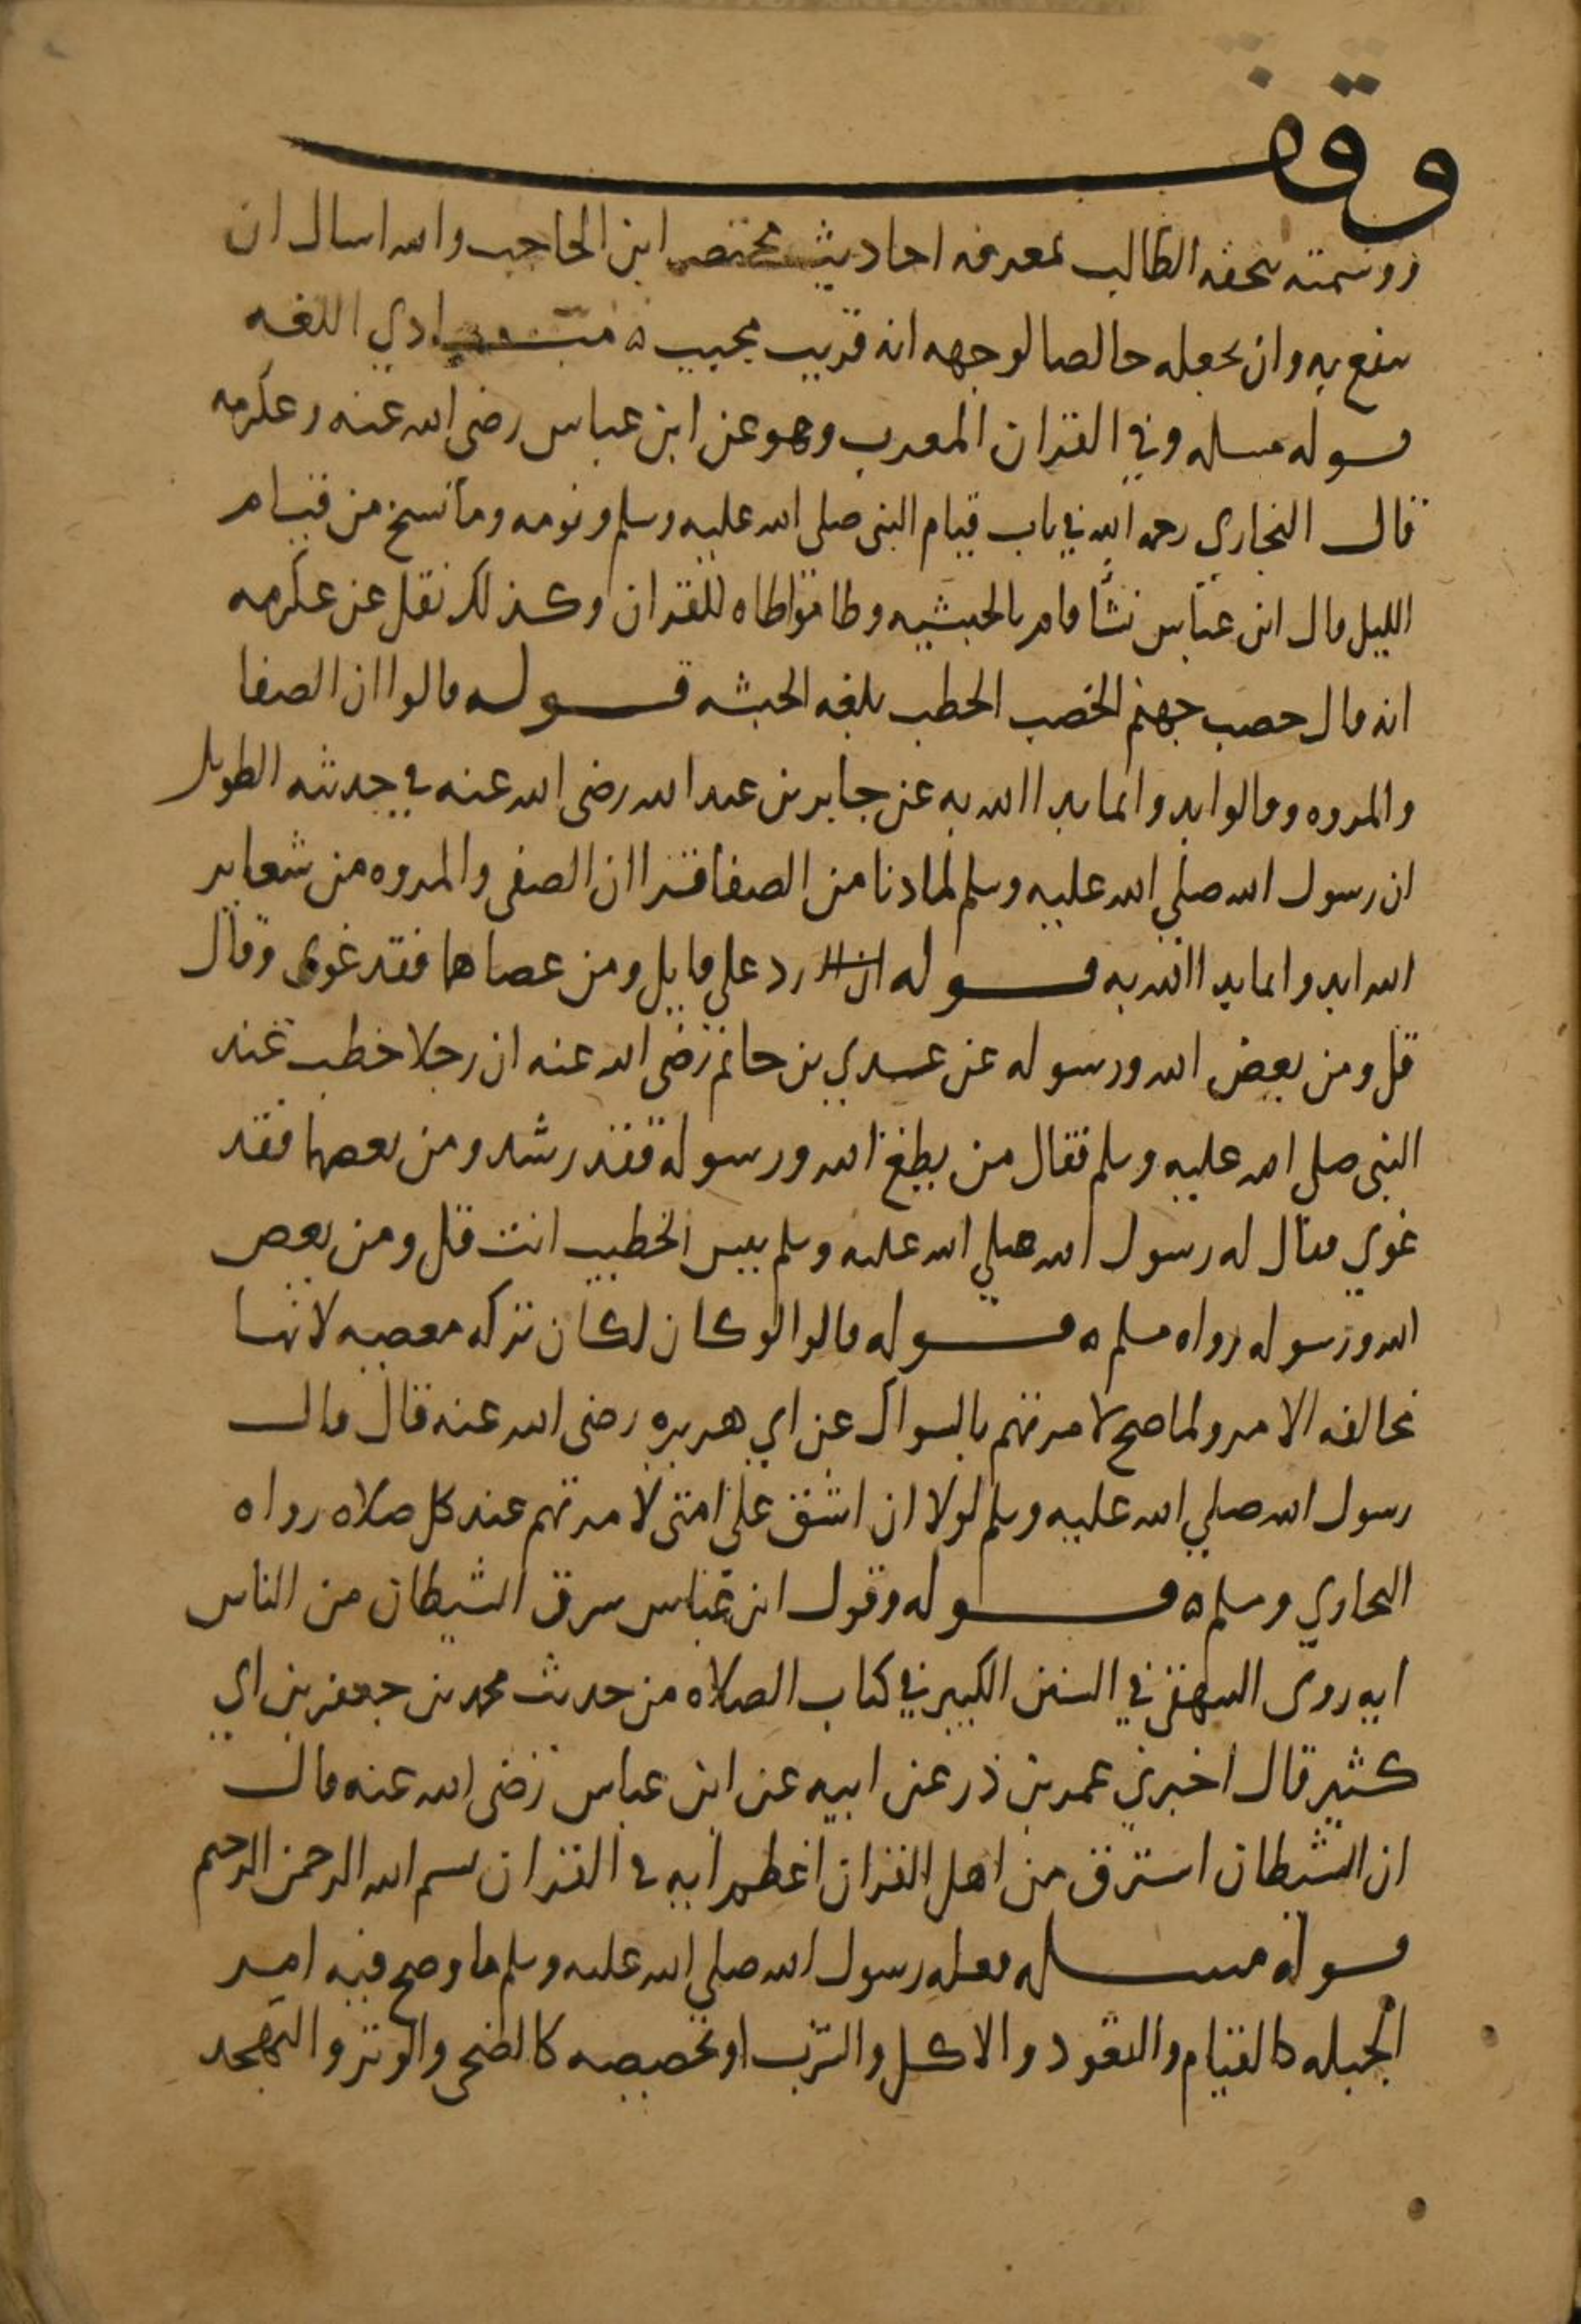 وقف
ووسمته بتحفه الطالب بمعرفه احاديث مختصر ابن الحاجب والله اسال ان
ينفع به وان يجعله خالصا لوجهه انه قريب مجيب ه مبادي اللغه
قوله مسله وفي القران المعرب وهو عن ابن عباس رضى الله عنه وعكرمه
قال البخاري رحمه الله في باب قيام النبى صلى الله عليه وسلم ونومه وما نسخ من قيام
الليل قال ابن عباس نشأ قام بالحبشيه وطا مواطاه للقران وكذلك نقل عن عكرمه
انه قال حصب جهنم الحصب الحطب بلغه الحبشه قوله قالوا ان الصفا
والمروه وقالوا ابدوا بما بدا الله به عن جابر بن عبد الله رضى الله عنه في حديثه الطويل
ان رسول الله صلي الله عليه وسلم لما دنا من الصفا قرا ان الصفى والمروه من شعاير
الله ابدوا بما بدا الله به قوله رد على قايل ومن عصاهما فقد غوى وقال
قل ومن يعص الله ورسوله عن عدي بن حاتم رضى الله عنه ان رجلا خطب عند
النبى صلى الله عليه وسلم فقال من يطع الله ورسوله فقد رشد ومن يعصهما فقد
غوي فقال له رسول الله صلي الله عليه وسلم بيس الخطيب انت قل ومن يعص
الله ورسوله رواه مسلم ه قوله قالوا لو كان لكان تركه معصيه لانها
مخالفه الامر ولما صح لامرتهم بالسواك عن ابي هريره رضى الله عنه قال قال
رسول الله صلي الله عليه وسلم لولا ان اشق على امتى لامرتهم عند كل صلاه رواه
البخاري ومسلم ه قوله وقول ابن عباس سرق الشيطان من الناس
ايه روى البيهقى في السنن الكبير في كتاب الصلاه من حديث محمد بن جعفر بن ابي
كثير قال اخبرني عمر بن ذر عن ابيه عن ابن عباس رضى الله عنه قال
ان الشيطان استرق من اهل القران اعظم ايه في القران بسم الله الرحمن الرحيم
قوله مسله فعله رسول الله صلي الله عليه وسلم ما وضح فيه امر
الجبله كالقيام والقعود والاكل والشرب او تخصيصه كالضحى والوتر والتهجد